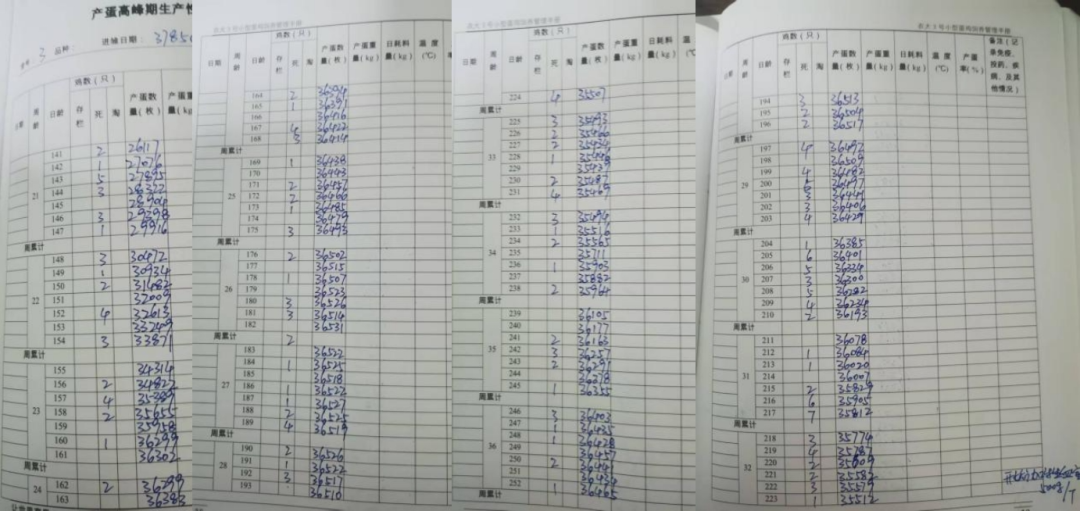 产蛋高峰期生产性
3 品种: 进雏日期: 3785
鸡数(只)
日期 周龄 日龄 存栏 死 淘 产蛋数量(枚) 产蛋重量(kg)
141 2 26117
142 1 27076
143 5 27895
21 144 3 28322
145 28904
146 3 29398
147 1 29916
周累计
148 3 30472
149 1 30934
150 2 31482
22 151 32009
152 4 32613
153 33249
154 3 33871
周累计
155 34314
156 2 34822
157 4 35389
23 158 2 35655
159 35958
160 1 36299
161 36302
周累计
24 162 2 36299
163 36383
农大3号小型蛋鸡饲养管理手册
鸡数(只)
日期 周龄 日龄 存栏 死 淘 产蛋数量(枚) 产蛋重量(kg) 日耗料量(kg) 温度(℃)
164 2 36394
165 1 36391
166 36416
167 4 36422
168 3 36414
周累计
169 1 36438
170 36443
171 2 36457
25 172 2 36466
173 1 36485
174 36479
175 3 36493
周累计
176 2 36502
177 36515
178 1 36507
26 179 36523
180 3 36526
181 3 36514
182 36531
周累计 2
183 36522
184 1 36525
185 36518
27 186 1 36522
187 1 36527
188 2 36525
189 4 36519
周累计
190 2 36526
28 191 1 36522
192 3 36517
193 36510
鸡数(只)
日期 周龄 日龄 存栏 死 淘 产蛋数量(枚) 产蛋重量(kg) 日耗料量(kg)
224 4 35507
周累计
225 3 35493
226 2 35460
227 2 35434
33 228 1 35448
229 35439
230 2 35487
231 4 35469
周累计
232 3 35494
233 1 35516
234 2 35565
34 235 35711
236 1 35903
237 35882
238 2 35964
周累计
239 36105
240 36177
241 2 36163
35 242 3 36257
243 2 36291
244 36278
245 1 36355
周累计
246 3 36403
247 1 36435
248 1 36428
36 249 36457
250 2
251 36434
252 1 36465
周累计
农大3号小型蛋鸡饲养管理手册
鸡数(只)
日期 周龄 日龄 存栏 死 淘 产蛋数量(枚) 产蛋重量(kg) 日耗料量(kg) 温度(℃) 产蛋率(%) 备注(记录免疫、投药、疾病、及其他情况)
194 3 36513
195 2 36504
196 2 36517
周累计
197 4 36492
198 36509
199 4 36482
29 200 36477
201 3 36441
202 3 36406
203 4 36429
周累计
204 1 36385
205 6 36401
206 5 36334
30 207 3 36300
208 5 36282
209 4 36234
210 2 36193
周累计
211 36078
212 1 36084
213 1 36020
31 214 36007
215 2 35829
216 6 35905
217 7 35812
周累计
218 3 35774
219 4 35787
220 2 35609
32 221 2 35582
222 3 35579
223 1 35512
500g/T